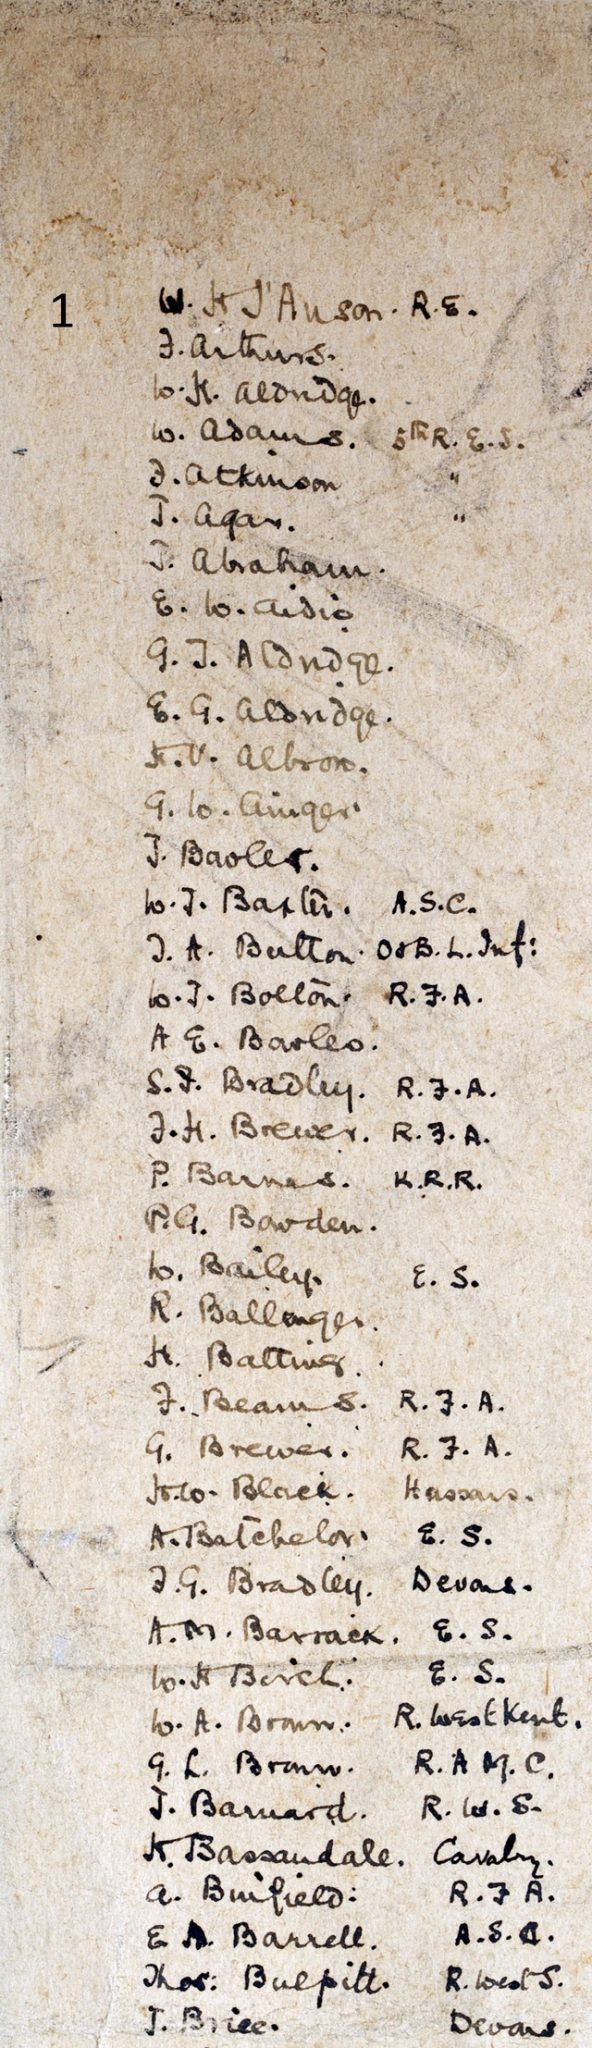 1
W. H I'Anson. R.E.
F. Arthurs.
W. H. Aldridge.
W. Adams. 5th R. E. S.
F. Atkinson "
T. Agar. "
J. Abraham.
E. W.
G. J. Aldridge.
E. G. Aldridge.
H. V. Albrow.
G. W. Ainger
J.
W. J. Baxter. A.S.C.
J. A. Button. O&B. L. Inf:
W. J. Bolton. R.F.A.
A E.
S. F. Bradley. R.F.A.
F. H. Brewer. R.F.A.
P. Barnes. K.R.R.
P.G. Bowden.
W. Bailey. E. S.
R. Ballinger.
H. Batting.
F. Beams. R. F. A.
G. Brewer. R. F. A.
H.W. Black. Hussars.
A. Batchelor. E. S.
F. G. Bradley. Devons.
A. M. Barrack. E. S.
W. H Birch. E. S.
W. A. Brown. R. West Kent.
G. L. Brown. R. A M. C.
J. Barnard. R. W. S.
H. Bassandale. Cavalry.
A. Binfield: R. F A.
E A. Barrell. A.S.C.
Thos: Bulpitt. R. West S.
J. Brice. Devons.